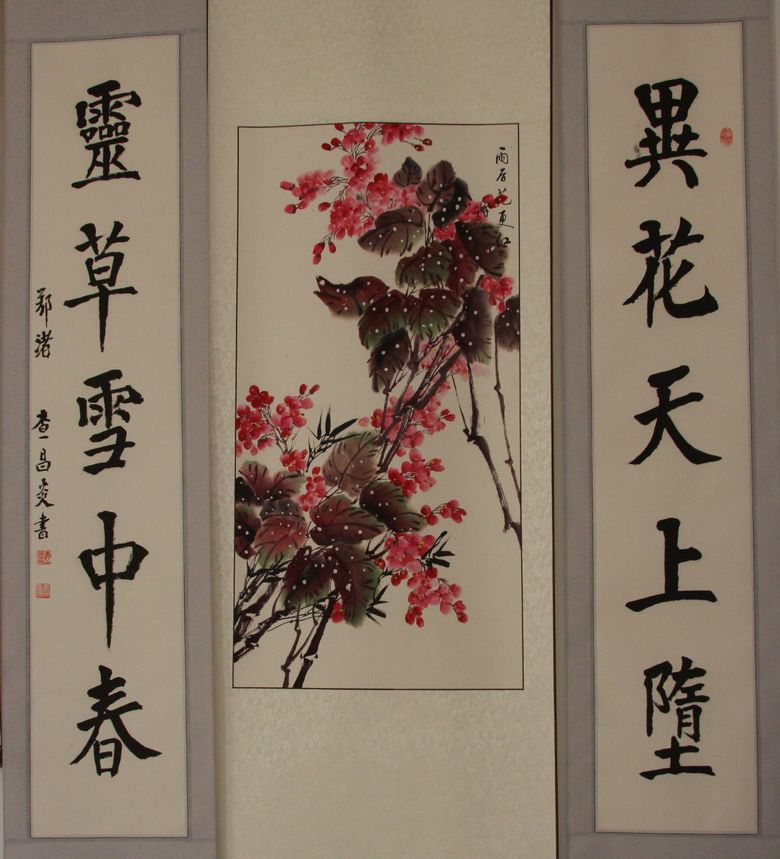 異花天上墮
雨后花更红
靈草雪中春
鄂渚 查昌炎書